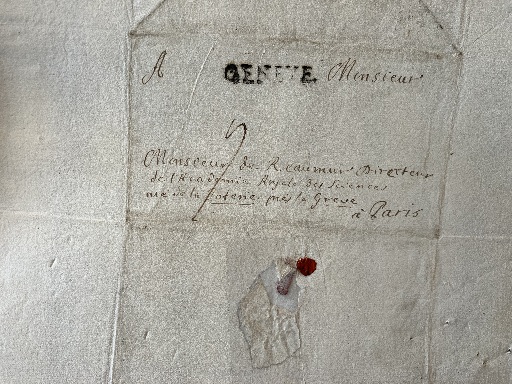 A GENEVE Monsieur
Monsieur de Reaumur Directeur
de l'Academie Royale des Sciences
rue de la près la Greve
à Paris